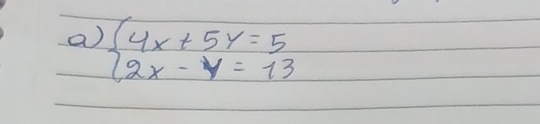 a) { 4x + 5y = 5
2x - y = 13